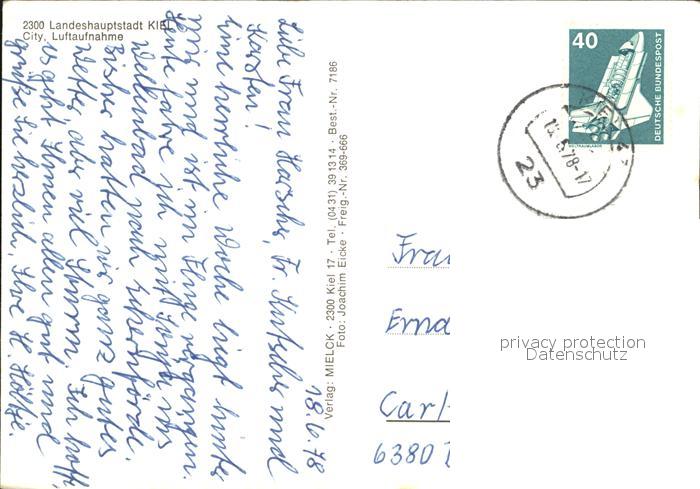 2300 Landeshauptstadt KIEL
City, Luftaufnahme
18.6.78
Liebe Frau Harsche, Fr. Kutscher und
Karsten!
Eine herrliche Woche liegt hinter
uns und ist im Fluge vergangen.
Heute fahre ich mit Sonja ins
Wellenbad nach Eckernförde.
Bisher hatten wir ganz gutes
Wetter aber viel Sturm. Ich hoffe
es geht Ihnen allen gut und
grüße Sie herzlich, Ihre H. Höltje.
Verlag: MIELCK · 2300 Kiel 17 · Tel. (0431) 391314 · Best.-Nr. 7186
Foto: Joachim Eicke · Freig.-Nr. 369-666
40
DEUTSCHE BUNDESPOST
WELTRAUMLABOR
6.78-17
23
Frau
Erna
Carl-
6380
privacy protection
Datenschutz